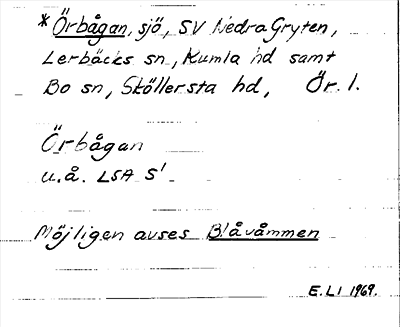 *Örbågan, sjö, SV Nedra Gryten,
Lerbäcks sn, Kumla hd samt
Bo sn, Sköllersta hd, Ör. l.
Örbågan
u.å. LSA S'
Möjligen avses Blåvåmmen
E.LI 1969.